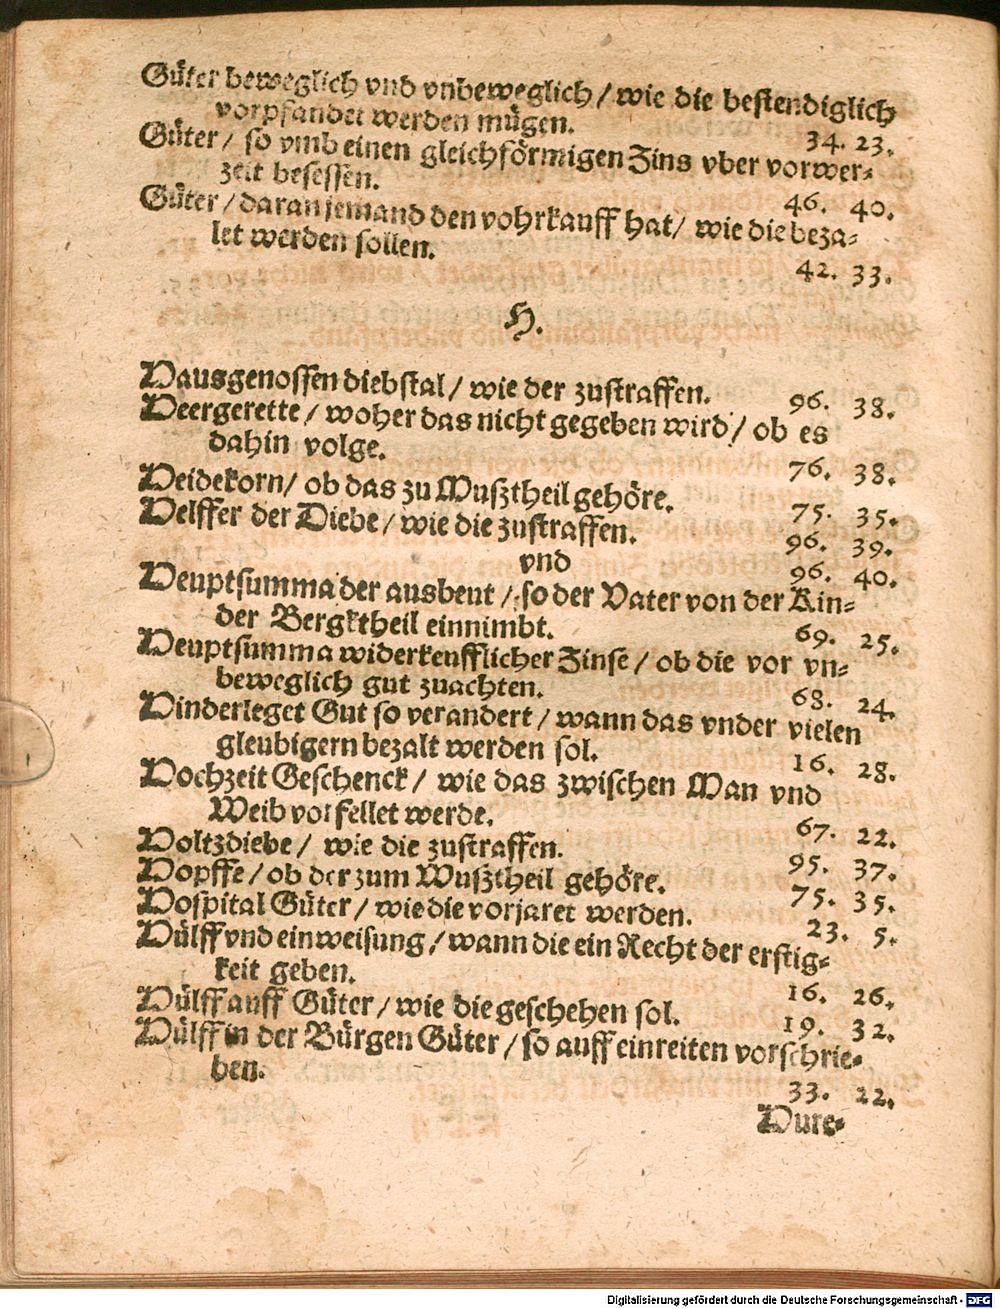 Güter beweglich vnd vnbeweglich / wie die bestendiglich
vorpfandet werden mügen. 34. 23.
Güter / so vmb einen gleichförmigen Zins vber vorwer-
zeit besessen. 46. 40.
Güter / daran jemand den vohrkauff hat / wie die beza-
let werden sollen. 42. 33.
H.
Hausgenossen diebstal / wie der zustraffen. 96. 38.
Heergerette / woher das nicht gegeben wird / ob es
dahin volge. 76. 38.
Heidekorn / ob das zu Mußtheil gehöre. 75. 35.
Helffer der Diebe / wie die zustraffen. 96. 39.
vnd 96. 40.
Heuptsumma der ausbeut / so der Vater von der Kin-
der Bergktheil einnimbt. 69. 25.
Heuptsumma widerkeufflicher Zinse / ob die vor vn-
beweglich gut zuachten. 68. 24.
Hinderleget Gut so verandert / wann das vnder vielen
gleubigern bezalt werden sol. 16. 28.
Hochzeit Geschenck / wie das zwischen Man vnd
Weib vorfellet werde. 67. 22.
Holtzdiebe / wie die zustraffen. 95. 37.
Hopffe / ob der zum Mußtheil gehöre. 75. 35.
Hospital Güter / wie die vorjaret werden. 23. 5.
Hülff vnd einweisung / wann die ein Recht der erstig-
keit geben. 16. 26.
Hülff auff Güter / wie die geschehen sol. 19. 32.
Hülff in der Bürgen Güter / so auff einreiten vorschrie-
ben. 33. 22.
Hure-
Digitalisierung gefördert durch die Deutsche Forschungsgemeinschaft - DFG